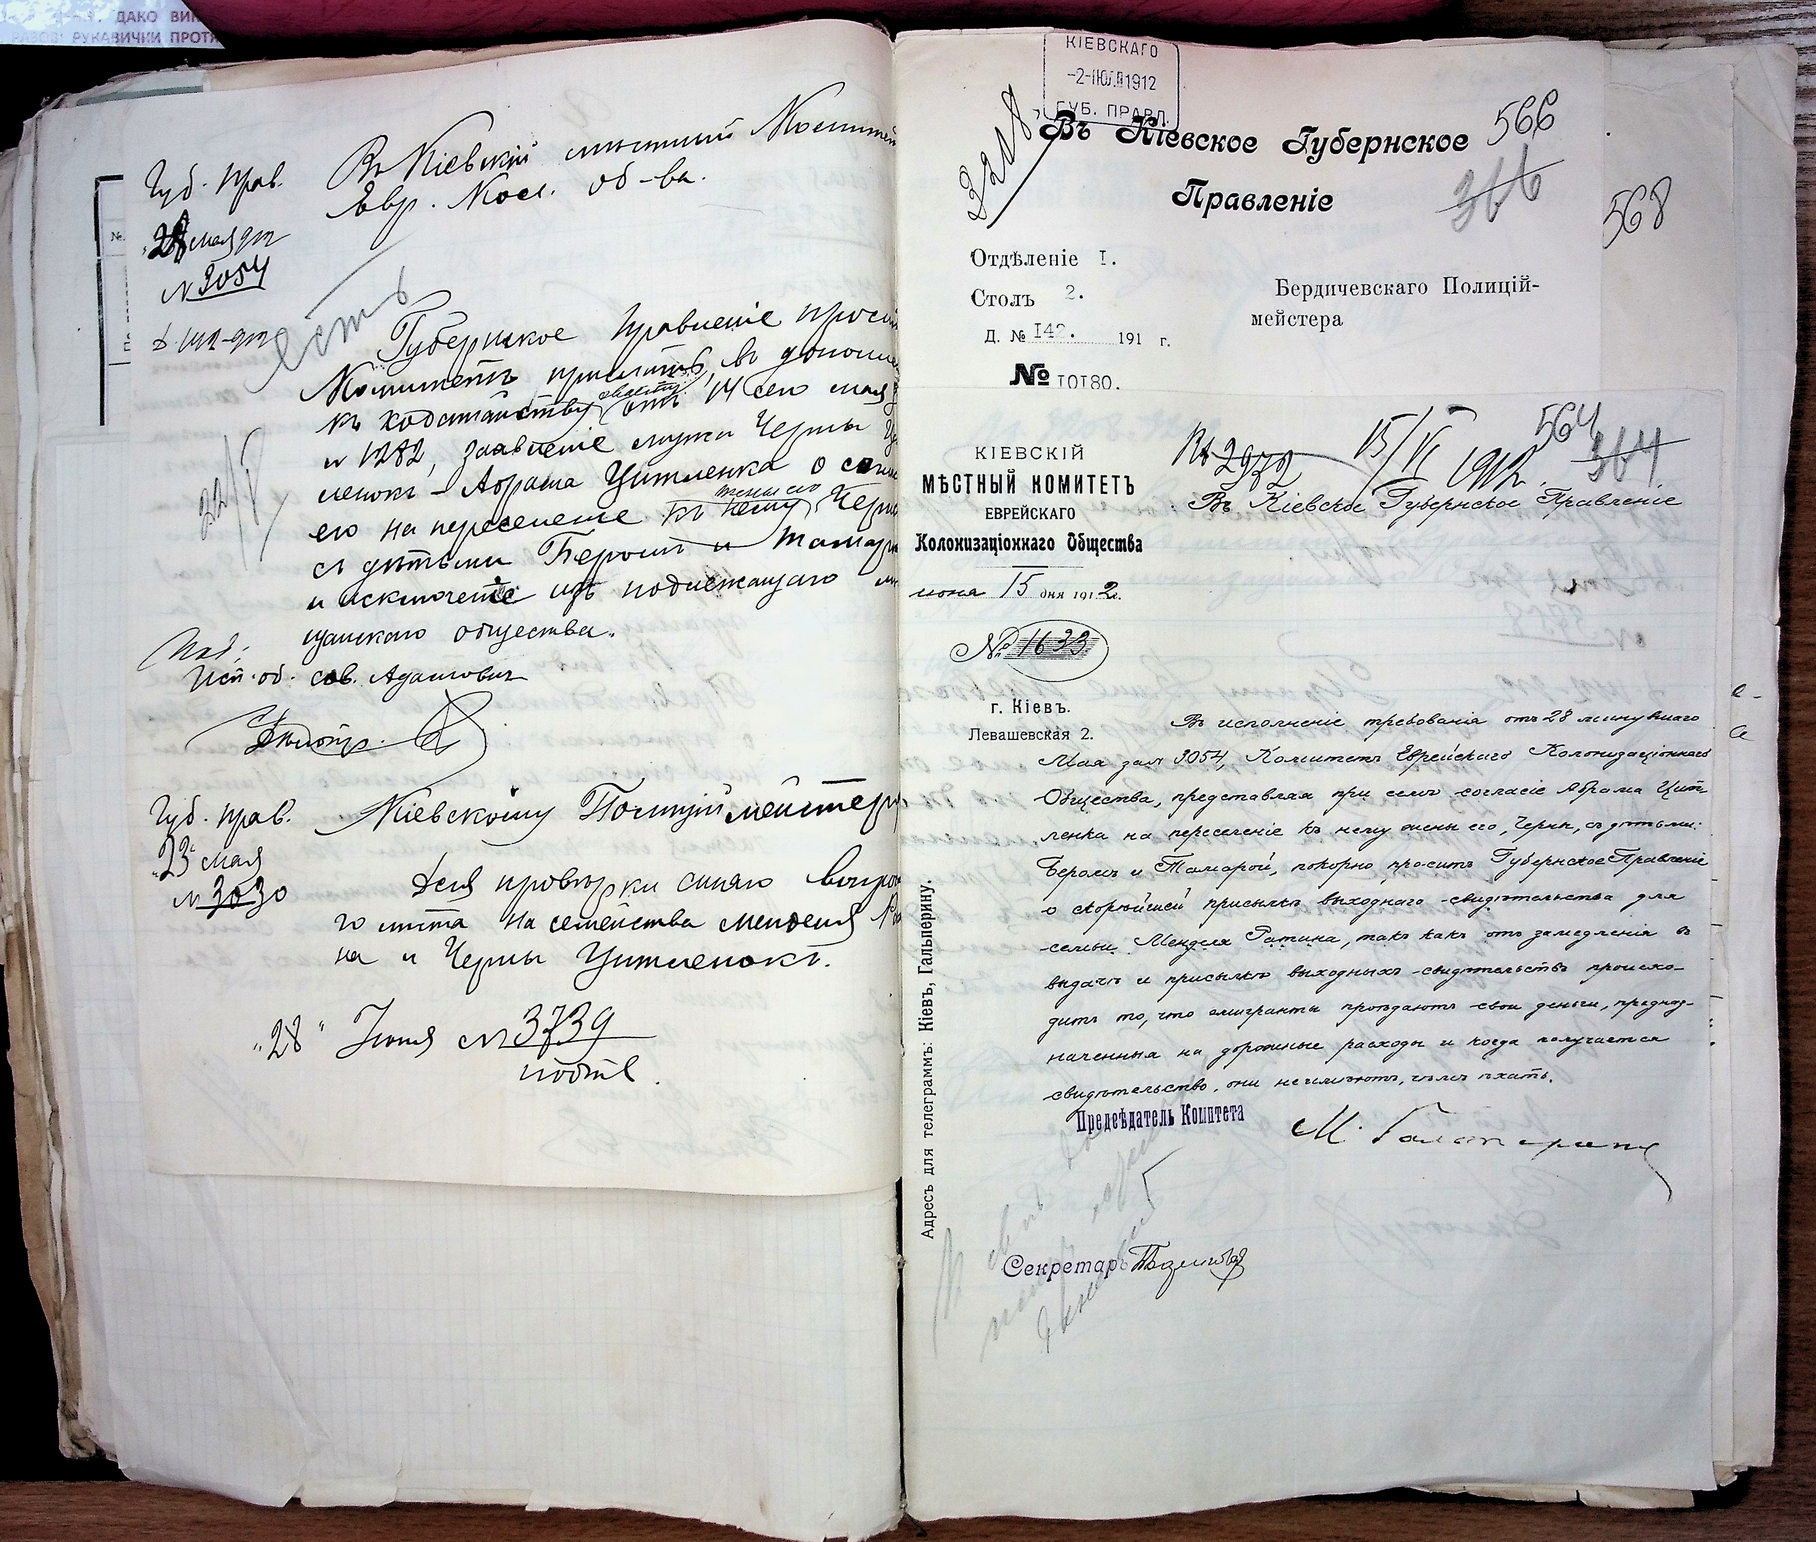 ДАКО ВИК
РАЗОВІ РУКАВИЧКИ ПРОТЯ
Губ. Прав.
28 мая 912
№ 3054
Въ Кіевскій мѣстный Комитет
Евр. Кол. об-ва.
есть
Губернское Правленіе проси
Комитетъ прислать, въ дополне
къ ходатайству своему отъ 14 сего мая
№ 1282, заявленіе мужа Черны Ци
ленокъ - Абрама Цитленка о согла
его на переселеніе къ нему жены его Черны
съ дѣтьми Беромъ и Тамар
и исключеніе изъ подлежащаго м
щанскаго общества.
22/V
Под.:
Исп. об. сов. Адамович
Губ. Прав.
23 мая
№ 3030
Кіевскому Полиціймейстеру
Для провѣрки синяго вопрос
го листа на семейства Менделя Ра
на и Черны Цитленокъ.
"28" Іюня № 3739
подтв.
КІЕВСКАГО
-2-ІЮЛ 1912
ГУБ. ПРАВЛ.
3208
Въ Кіевское Губернское
Правленіе
566
366
568
Отдѣленіе I.
Столъ 2.
Д. № 142. 191 г.
№ 10180.
Бердичевскаго Полицій-
мейстера
№ 2972 15/VI 1912.
564
364
КІЕВСКІЙ
МѢСТНЫЙ КОМИТЕТЪ
ЕВРЕЙСКАГО
Колонизаціоннаго Общества
июня 15 дня 1912 г.
№ 1633
г. Кіевъ.
Левашевская 2.
Въ Кіевское Губернское Правленіе
Въ исполненіе требованія отъ 28 минувшаго
Мая за № 3054, Комитетъ Еврейскаго Колонизаціоннаго
Общества, представляя при семъ согласіе Абрама Цит-
ленка на переселеніе къ нему жены его, Черны, съ дѣтьми:
Беромъ и Тамарой, покорно проситъ Губернское Правленіе
о скорѣйшей присылкѣ выходнаго свидѣтельства для
семьи Менделя Ратина, такъ какъ отъ замедленія въ
выдачѣ и присылкѣ выходныхъ свидѣтельствъ происхо-
дитъ то, что эмигранты проѣдаютъ свои деньги, предназ-
наченныя на дорожные расходы и когда получается
свидѣтельство, они не имѣютъ, чѣмъ ѣхать.
Предсѣдатель Комитета
М. Гальперинъ
Секретарь
Адресъ для телеграммъ: Кіевъ, Гальперину.